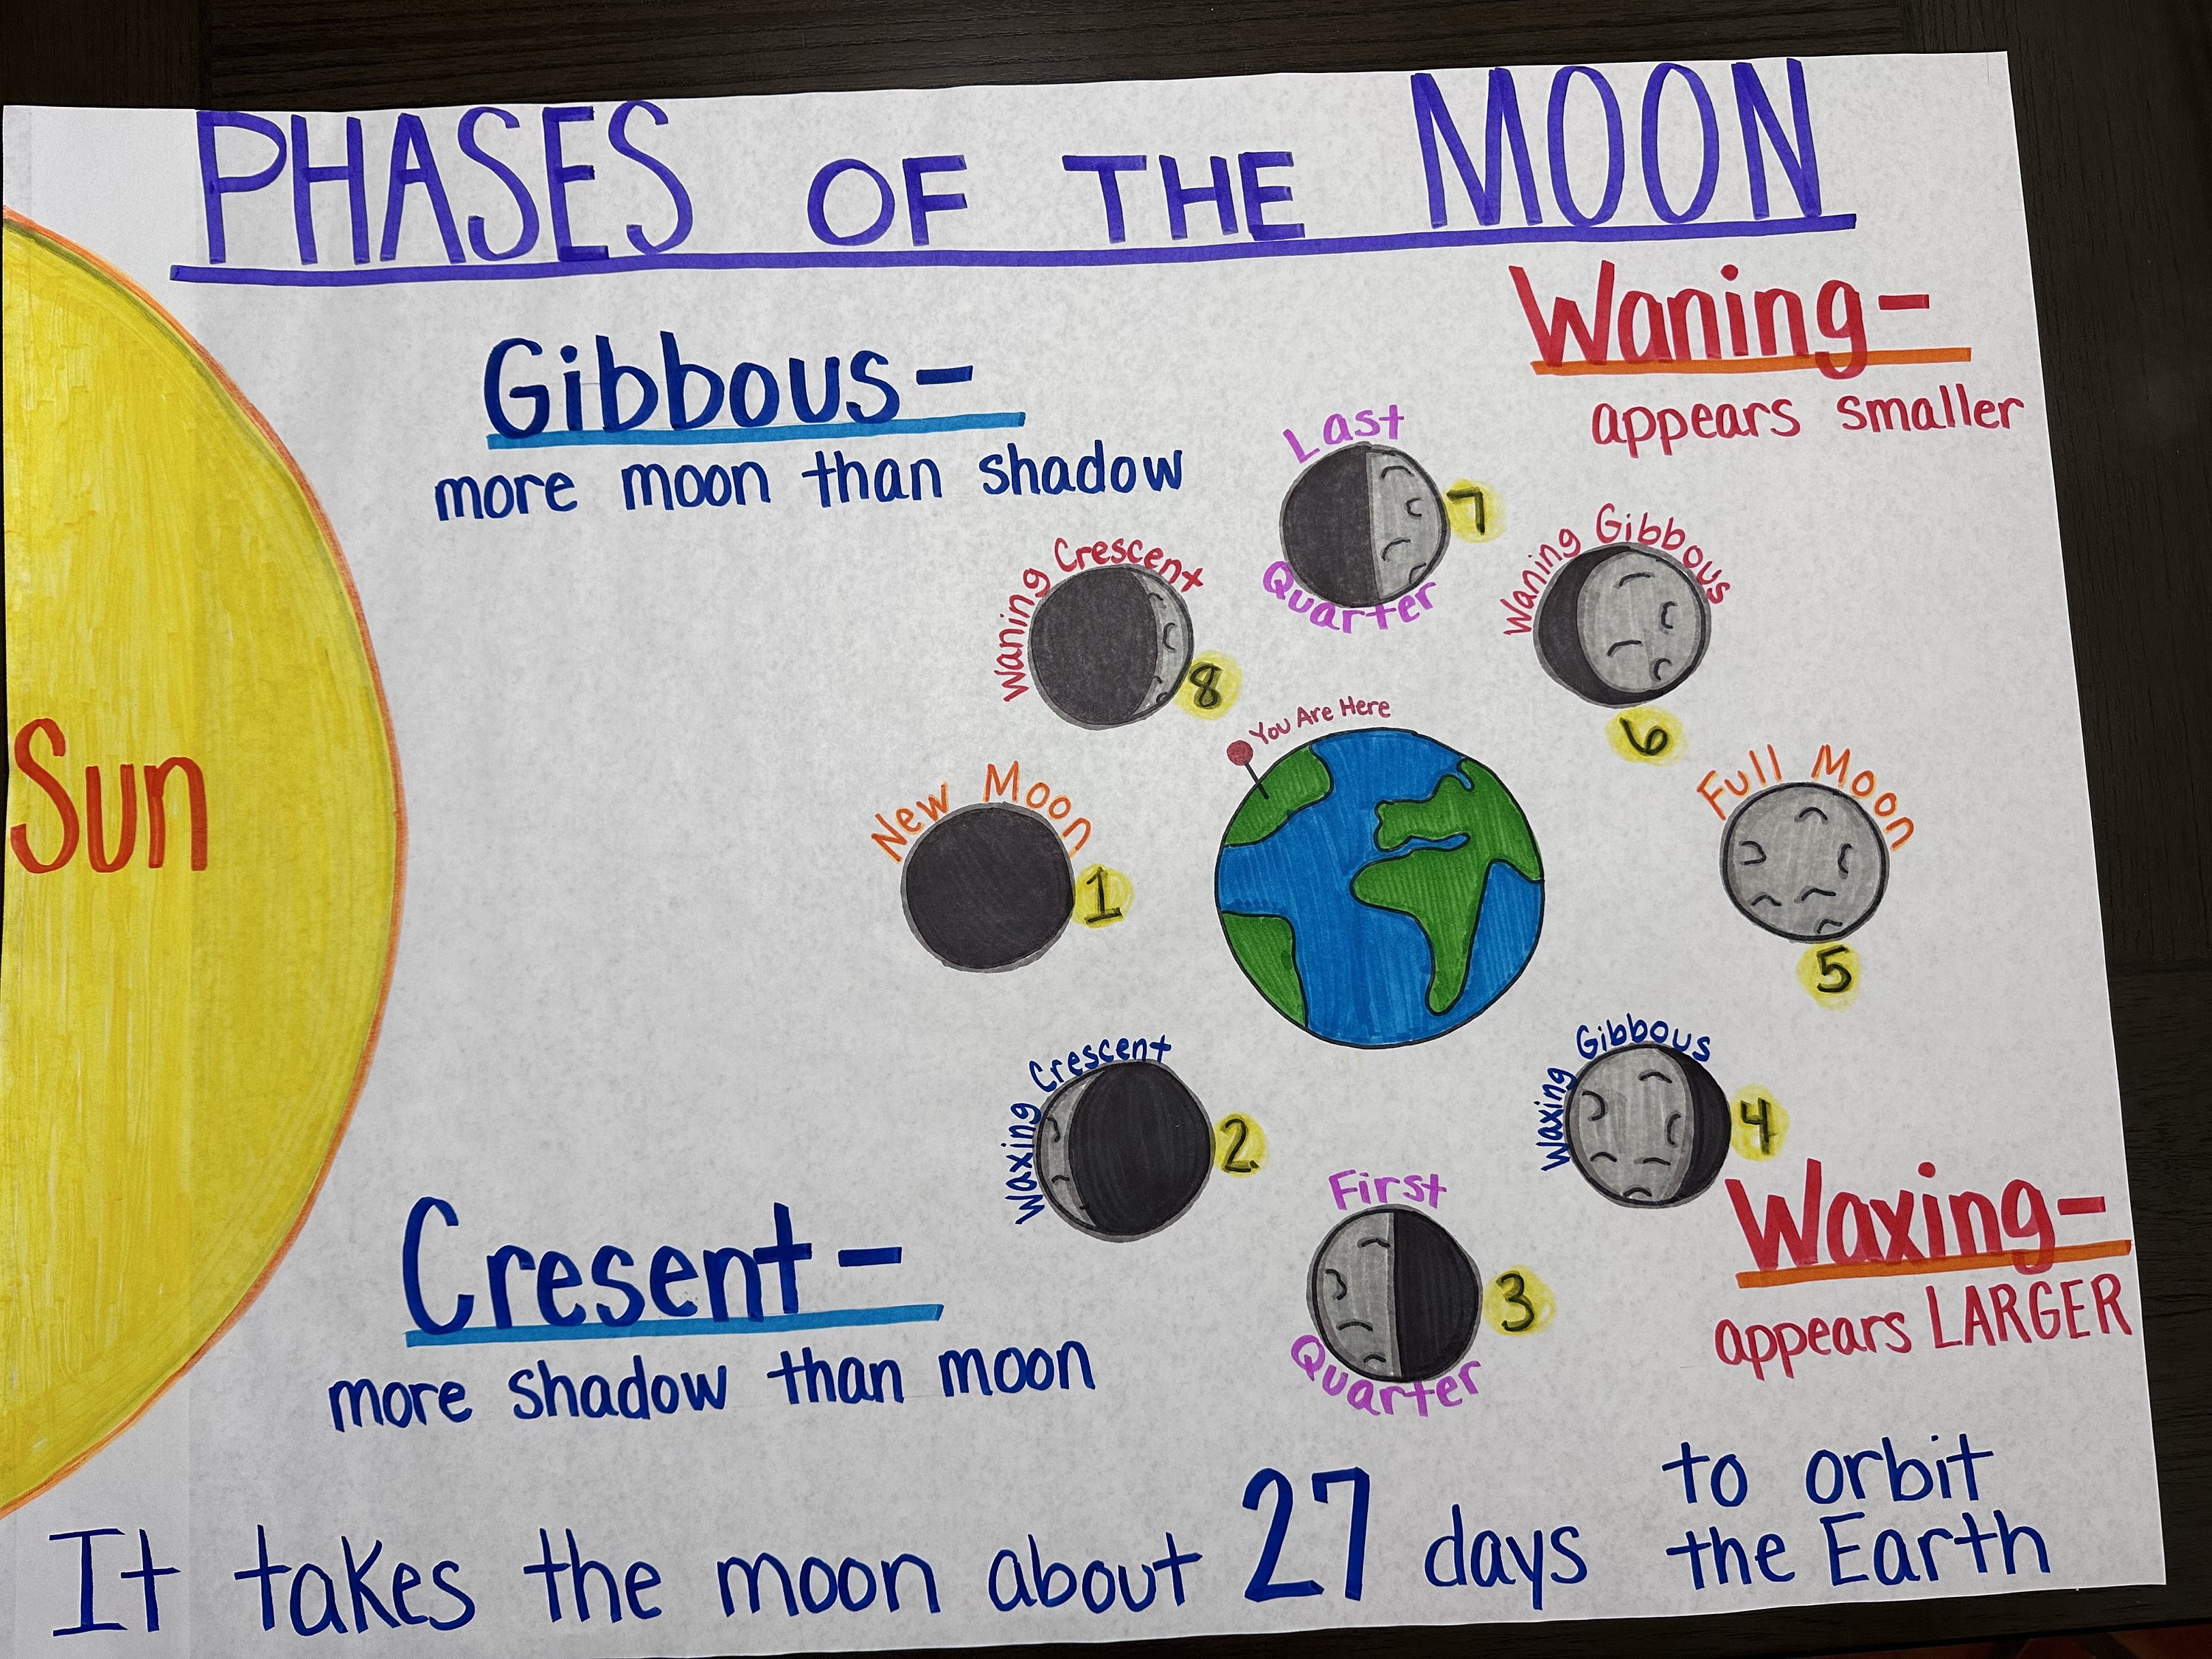 PHASES OF THE MOON
Waning-
appears smaller
Gibbous-
more moon than shadow
Last
Quarter
7
Waning Gibbous
6
Waning Crescent
8
You Are Here
Sun
New Moon
1
Full Moon
5
Waxing Crescent
2
Waxing Gibbous
4
First
Quarter
3
Waxing-
appears LARGER
Cresent-
more shadow than moon
It takes the moon about 27 days to orbit
the Earth